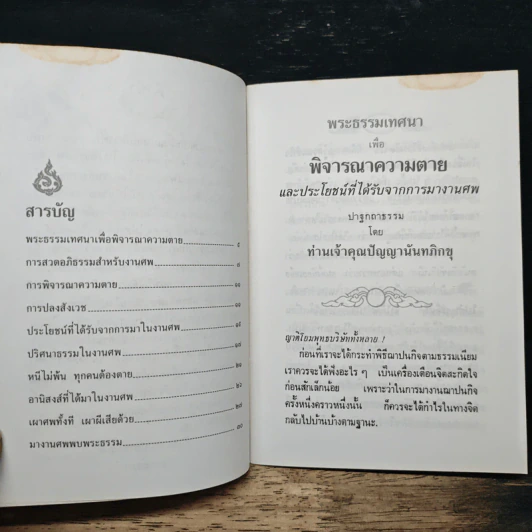 สารบัญ
พระธรรมเทศนาเพื่อพิจารณาความตาย
การสวดอภิธรรมสำหรับงานศพ
การพิจารณาความตาย
การปลงสังเวช
ประโยชน์ที่ได้รับจากการมาในงานศพ
ปริศนาธรรมในงานศพ
หนีไม่พ้น ทุกคนต้องตาย
อานิสงส์ที่ได้มาในงานศพ
เผาศพทั้งที เผาผีเสียด้วย
มางานศพพบพระธรรม
พระธรรมเทศนา
เพื่อ
พิจารณาความตาย
และประโยชน์ที่ได้รับจากการมางานศพ
ปาฐกถาธรรม
โดย
ท่านเจ้าคุณปัญญานันทภิกขุ
ญาติโยมพุทธบริษัททั้งหลาย !
ก่อนที่เราจะได้กระทำพิธีฌาปนกิจตามธรรมเนียม
เราควรจะได้ฟังอะไร ๆ เป็นเครื่องเตือนจิตสะกิดใจ
ก่อนสักเล็กน้อย เพราะว่าในการมางานฌาปนกิจ
ครั้งหนึ่งคราวหนึ่งนั้น ก็ควรจะได้กำไรในทางจิต
กลับไปบ้านบ้างตามฐานะ.